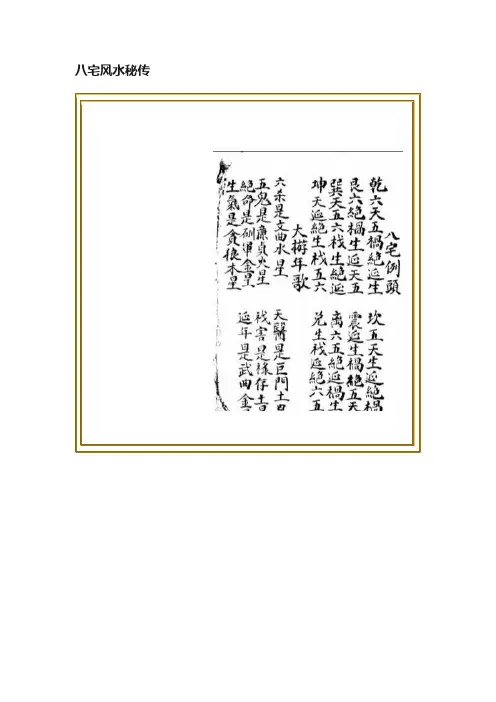 八宅风水秘传
八宅例頭
乾六天五禍絶延生
坎五天生延絶禍
艮六絶禍生延天五
震延生禍絶五天
巽天五六栈生絶延
离六五絶延禍生
坤天延絶生栈五六
兑生栈延絶六五
大年歌
六杀是文曲水星
天醫是巨門土
五鬼是廉貞火星
栈害是祿存土
絶命是軍金星
延年是武曲金
生氣是貪狼木星